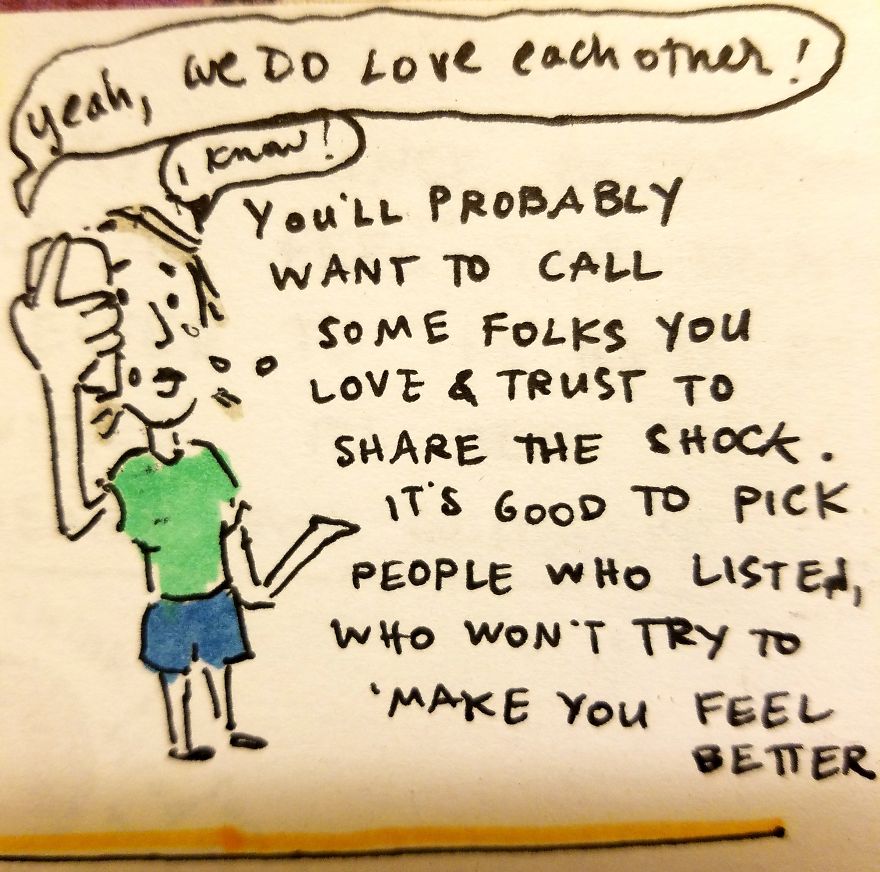 Yeah, we DO Love each other!
I know!
YOU'LL PROBABLY
WANT TO CALL
SOME FOLKS YOU
LOVE & TRUST TO
SHARE THE SHOCK.
IT'S GOOD TO PICK
PEOPLE WHO LISTEN,
WHO WON'T TRY TO
'MAKE YOU FEEL
BETTER